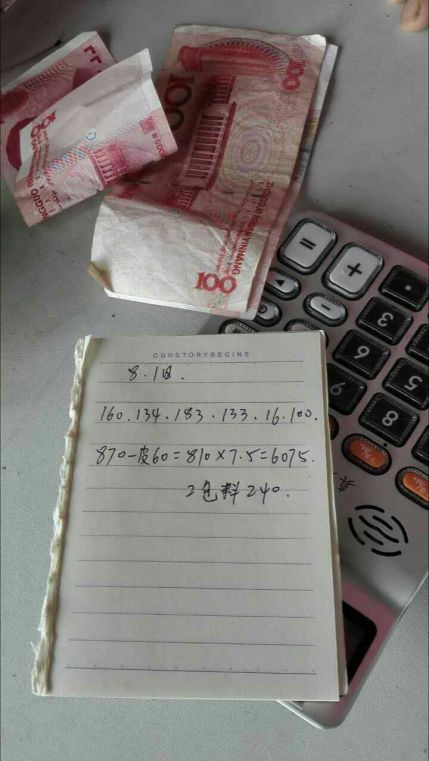 100
100
2005年
ZHONGGUO RENMIN YINHANG
100
=
+
-
.
3
6
9
8
OURSTORYBEGINS
8.1日.
160.134.183.133.16.100.
870-皮60=810×7.5=6075.
2包料240.